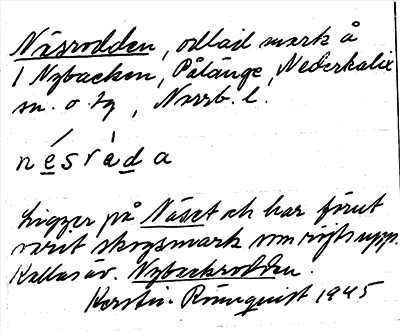 Näsrodden, odlad mark å
1 Nybacken, Pålänge, Nederkalix
sn. o. tg, Norrb. l.
nésràda
Ligger på Näset och har förut
varit skogsmark som röjts upp.
Kallas äv. Nybackrodden.
Kerstin Rönnquist 1945